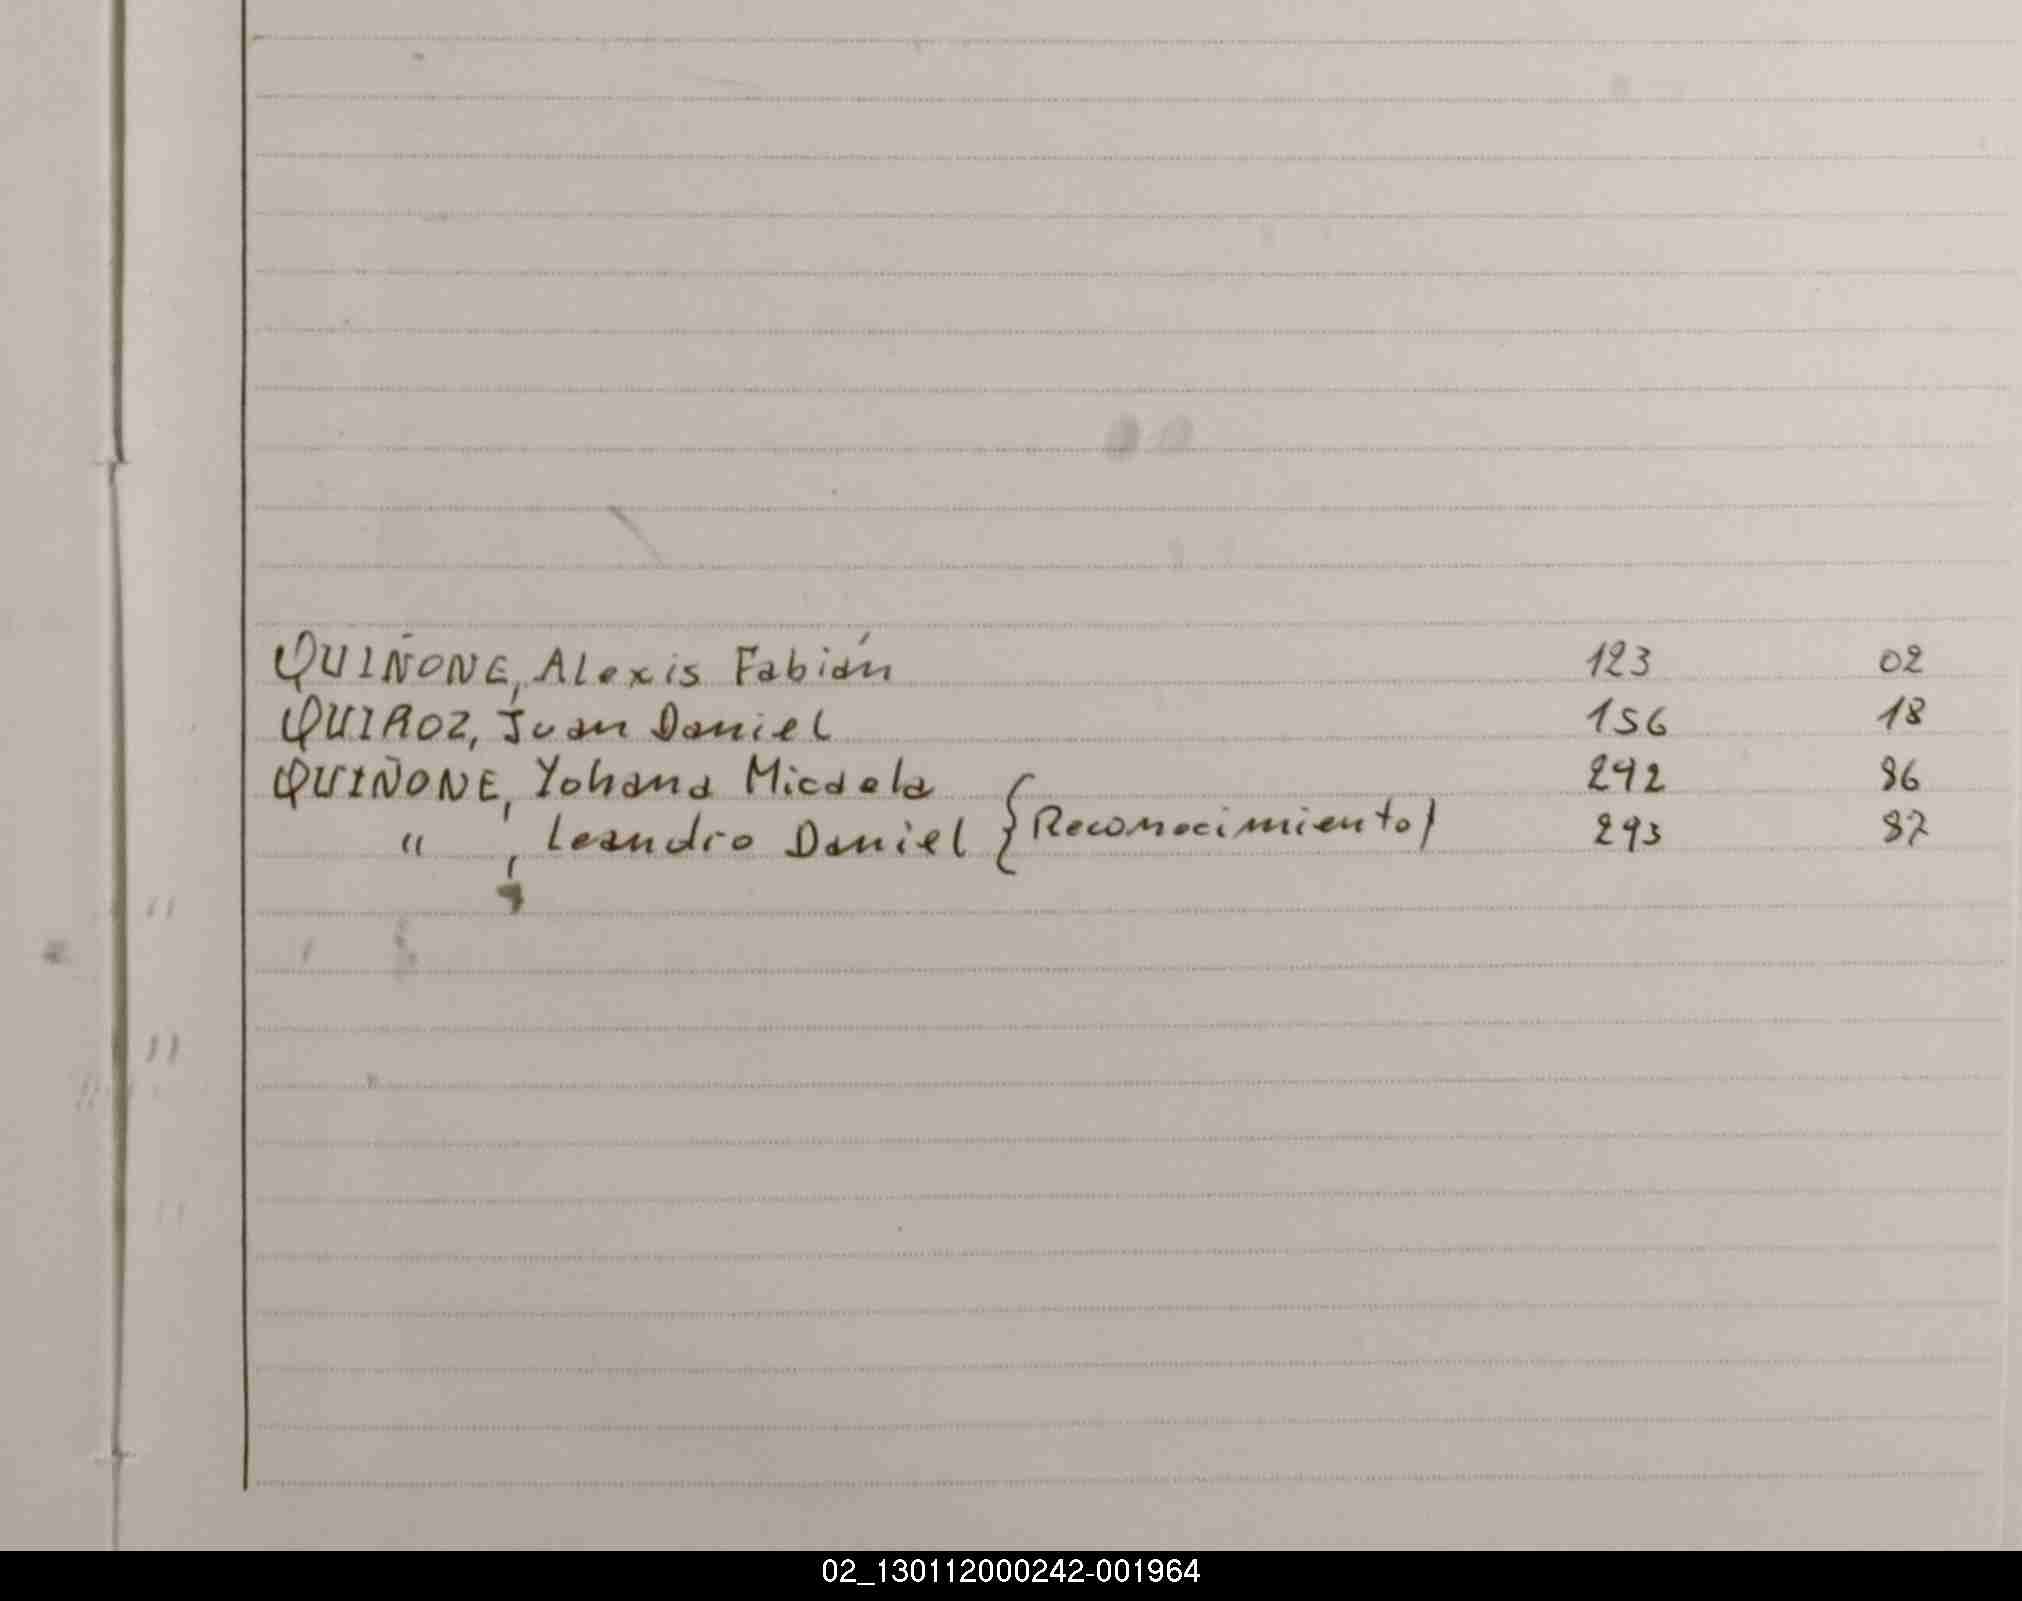 QUIÑONE, Alexis Fabián 123 02
QUIROZ, Juan Daniel 156 18
QUIÑONE, Yohana Micaela 292 86
" , Leandro Daniel {Reconocimiento) 293 87
02_130112000242-001964